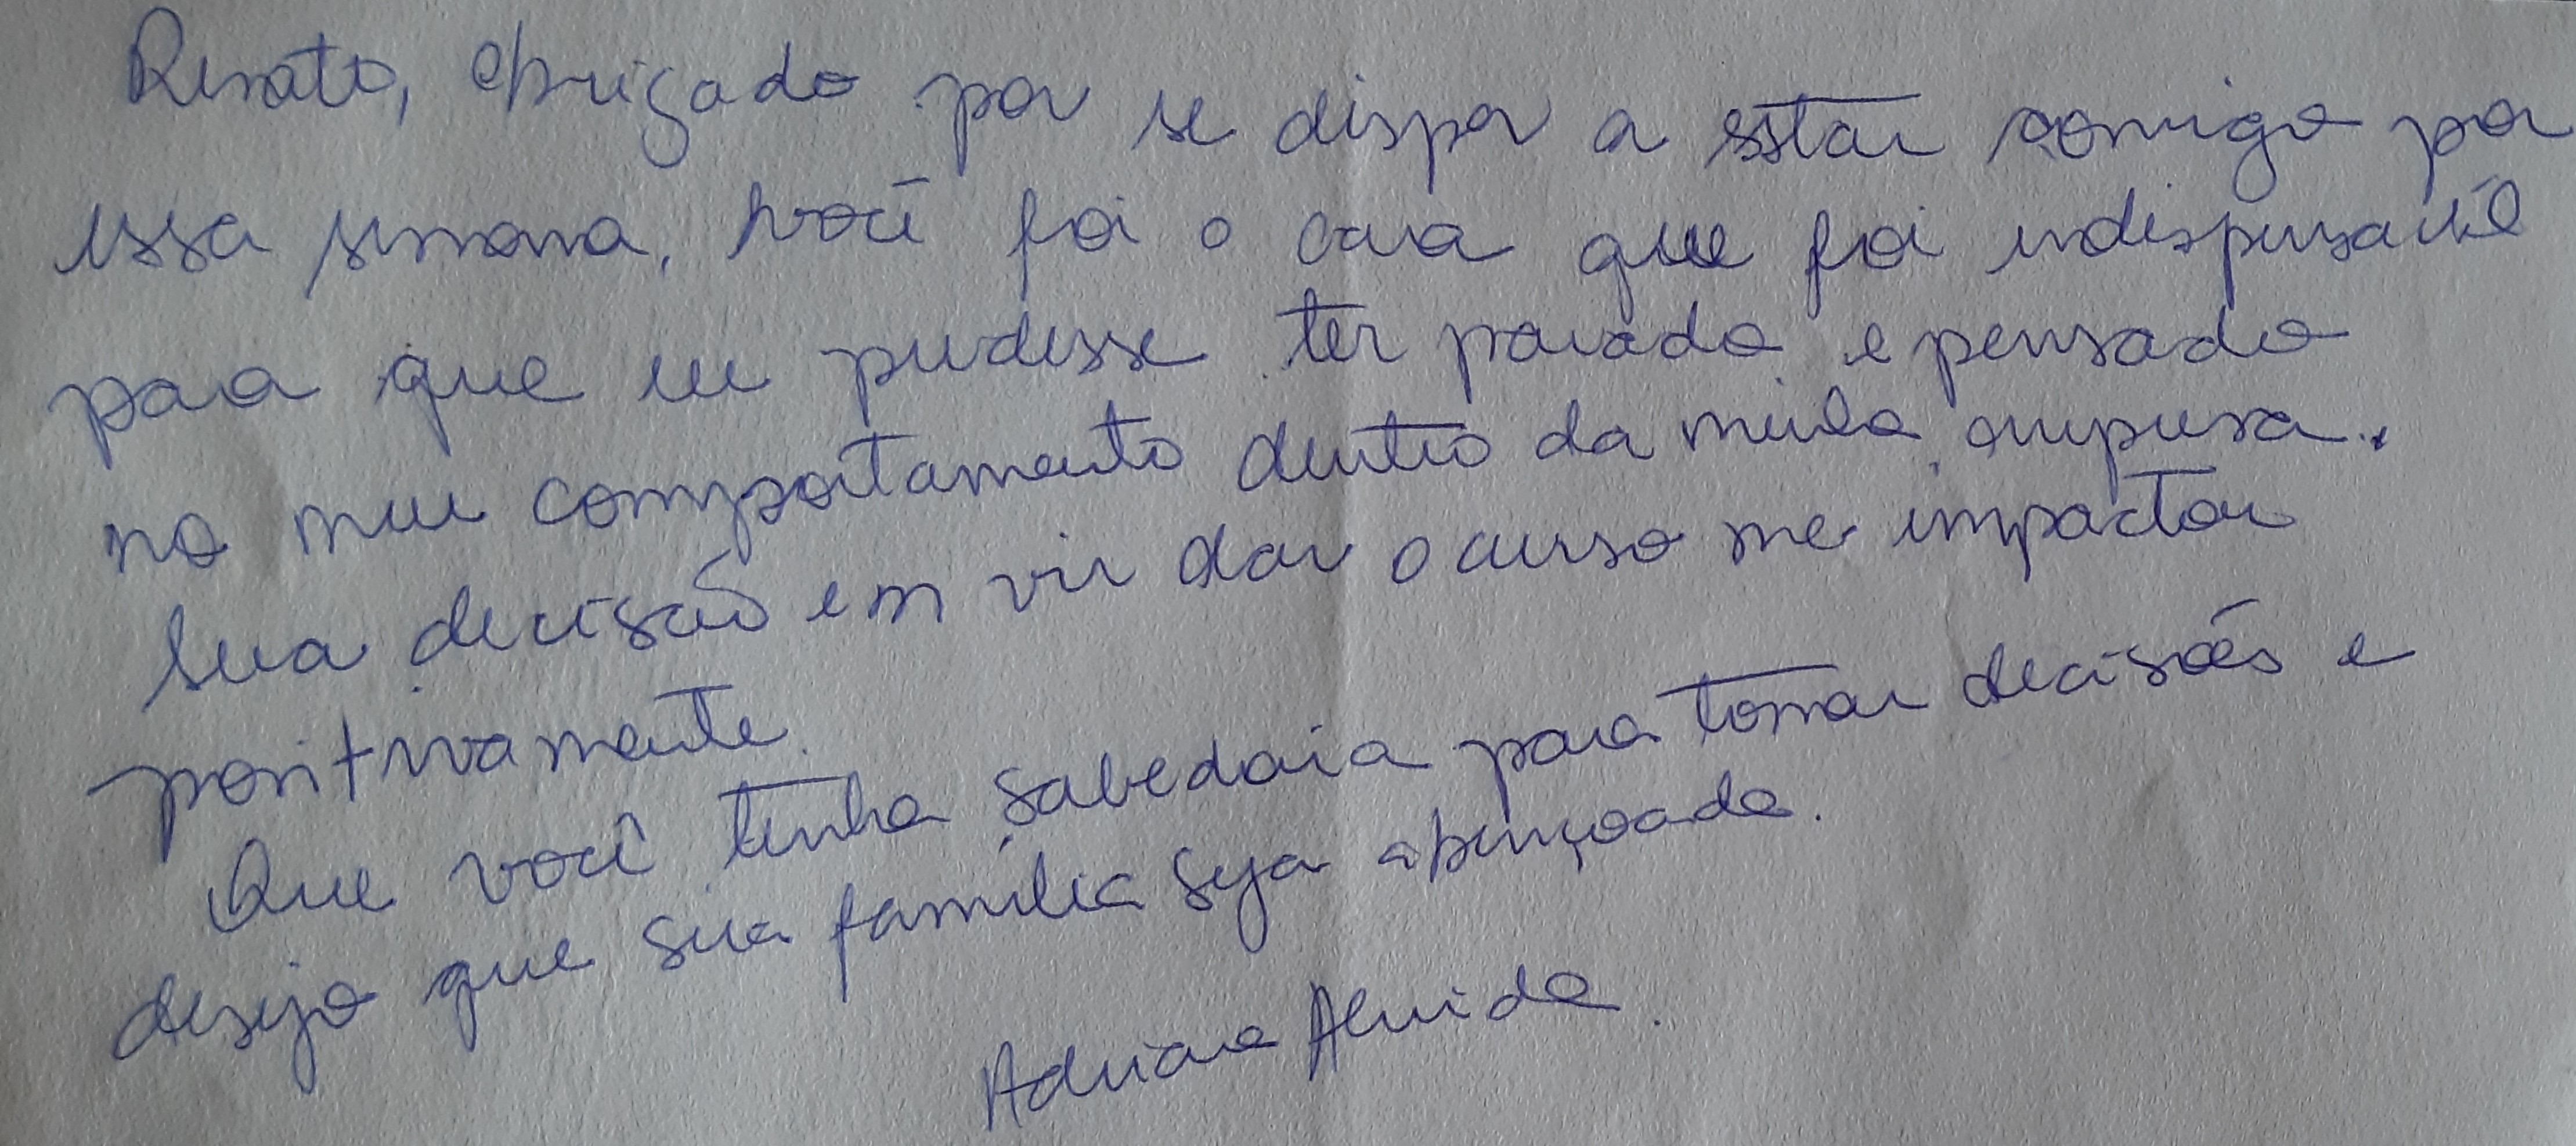 Renato, obrigado por se dispor a estar comigo por
essa semana, você foi o cara que foi indispensavél
para que eu pudesse ter parado e pensado
no meu comportamento dentro da minha empresa.
Sua decisão em vir dar o curso me impactou
positivamente.
Que você tenha sabedoria para tomar decisões e
desejo que sua família seja abençoada.
Adriana Almeida.